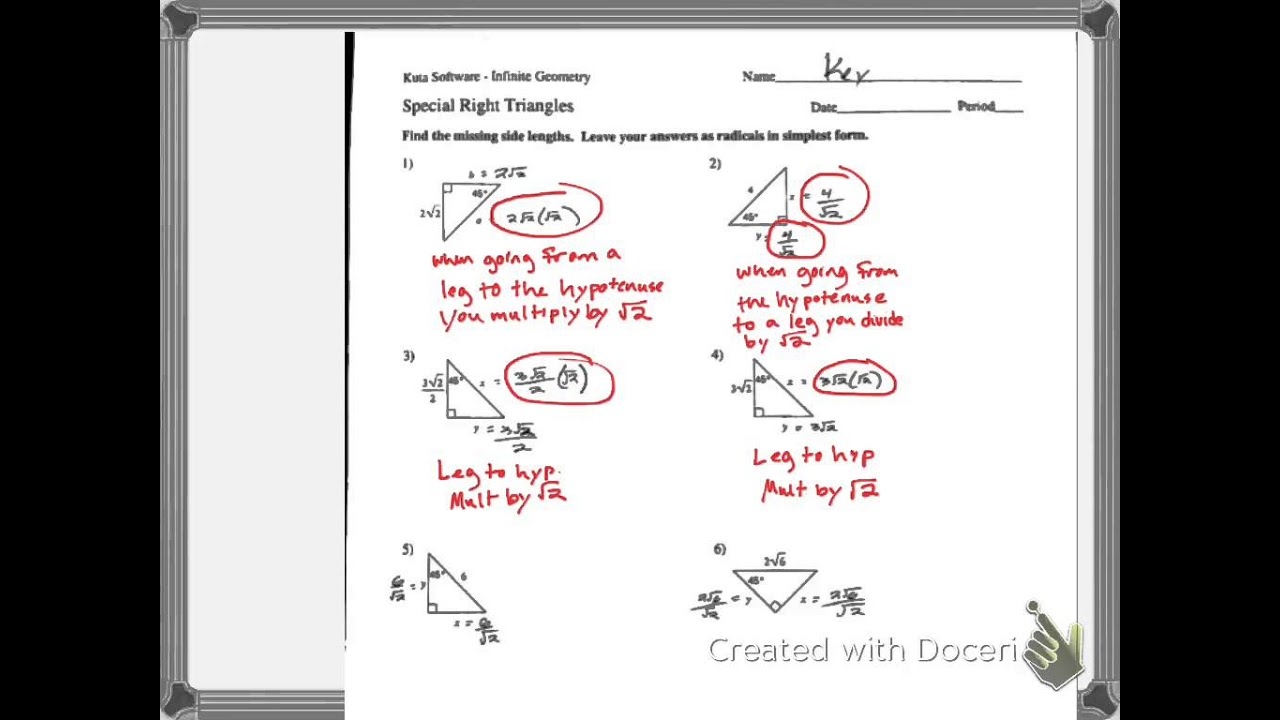 Kuta Software - Infinite Geometry
Name Key
Special Right Triangles
Date Period
Find the missing side lengths. Leave your answers as radicals in simplest form.
1)
b = 2√2
45°
2√2
2√2(√2)
when going from a
leg to the hypotenuse
you multiply by √2
2)
4
x = 4/√2
45°
y = 4/√2
when going from
the hypotenuse
to a leg you divide
by √2
3)
3√2/2
45°
x = 3√2/2 (√2)
y = 3√2/2
Leg to hyp.
Mult by √2
4)
3√2
45°
x = 3√2(√2)
y = 3√2
Leg to hyp
Mult by √2
5)
6/√2 = y
45°
6
x = 6/√2
6)
2√6
45°
2√6/√2 = y
x = 2√6/√2
Created with Doceri